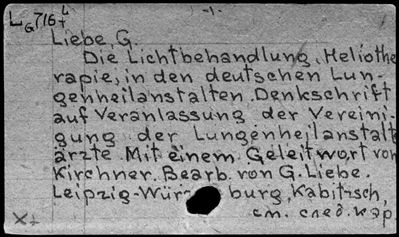 L_G 716 L/+
-1-
Liebe, G.
Die Lichtbehandlung, Heliothe
rapie, in den deutschen Lun-
genheilanstalten, Denkschrift
auf Veranlassung der Vereini-
gung der Lungenheilanstalt
ärzte. Mit einem Geleitwort von
Kirchner. Bearb. von G. Liebe.
Leipzig-Würz burg, Kabitzsch,
см. след. кар.